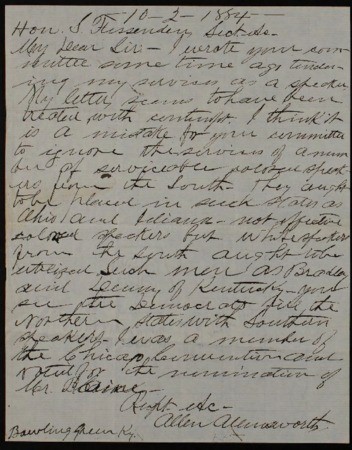 10-2-1884-
Hon. S. Fessenden, Sect &c-
My Dear Sir- I wrote your com-
mittee some time ago tender-
ing my services as a speaker
My letter seems to have been
treated with contempt. I think it
is a mistake for your committee
to ignore the services of a num-
ber of serviceable colored speak-
ers from the South. They ought
to be placed in such states as
Ohio and Indiana- not
colored speakers but white speakers
from the South ought to be
utilized such men as Bradley
and Denny of Kentucky- you
see the Democrats fill the
Northern states with Southern
speakers. I was a member of
the Chicago Convention and
voted for the nomination of
Mr. Blaine-
Respt &c-
Allen Allensworth
Bowling Green Ky.